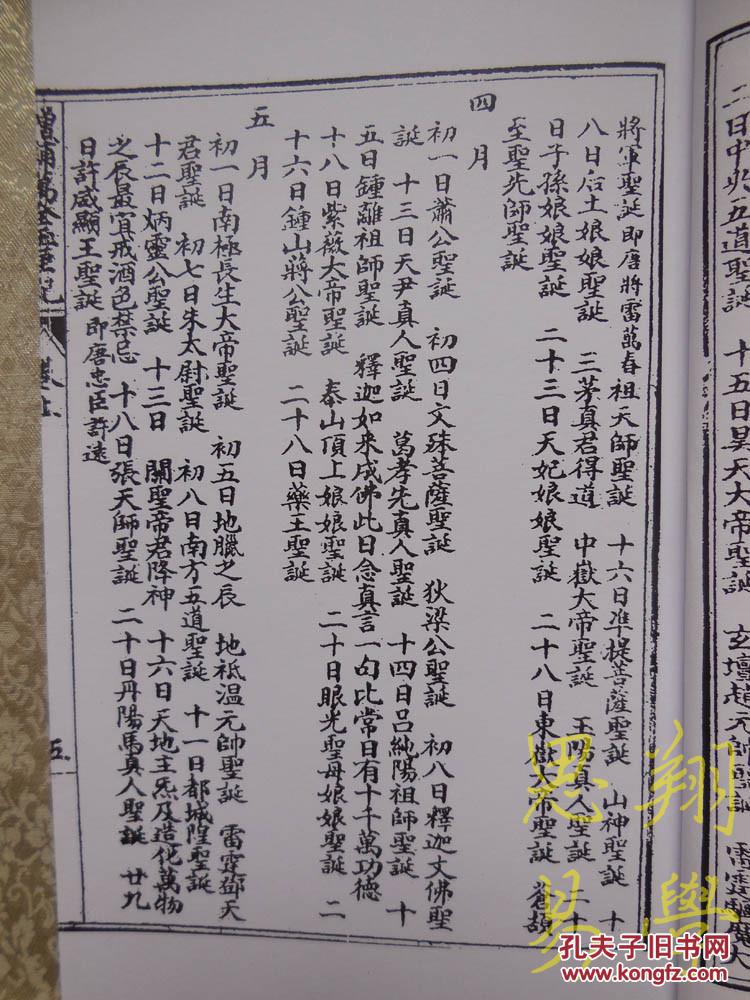 二日中兆五道聖誕　十五日昊天大帝聖誕　玄壇趙元帥聖誕　雷霆
將軍聖誕即唐將雷萬春　祖天師聖誕　十六日准提菩薩聖誕　山神聖誕　十
八日后土娘娘聖誕　三茅真君得道　中嶽大帝聖誕　玉陽真人聖誕　二十
日子孫娘娘聖誕　二十三日天妃娘娘聖誕　二十八日東嶽大帝聖誕　蒼頡
至聖先師聖誕
四月
初一日蕭公聖誕　初四日文殊菩薩聖誕　狄梁公聖誕　初八日釋迦文佛聖
誕　十三日天尹真人聖誕　葛孝先真人聖誕　十四日呂純陽祖師聖誕　十
五日鍾離祖師聖誕　釋迦如来成佛此日念真言一句比常日有十千萬功德
十八日紫薇大帝聖誕　泰山頂上娘娘聖誕　二十日眼光聖母娘娘聖誕　二
十六日鍾山蔣公聖誕　二十八日藥王聖誕
五月
初一日南極長生大帝聖誕　初五日地臘之辰　地祗温元帥聖誕　雷霆鄧天
君聖誕　初七日朱太尉聖誕　初八日南方五道聖誕　十一日都城隍聖誕
十二日炳靈公聖誕　十三日關聖帝君降神　十六日天地主炁及造化萬物
之辰最宜戒酒色禁忌　十八日張天師聖誕　二十日丹陽馬真人聖誕　廿九
日許威顯王聖誕即唐忠臣許遠
增補萬全玉匣記
五
思翔易學
孔夫子旧书网
www.kongfz.com